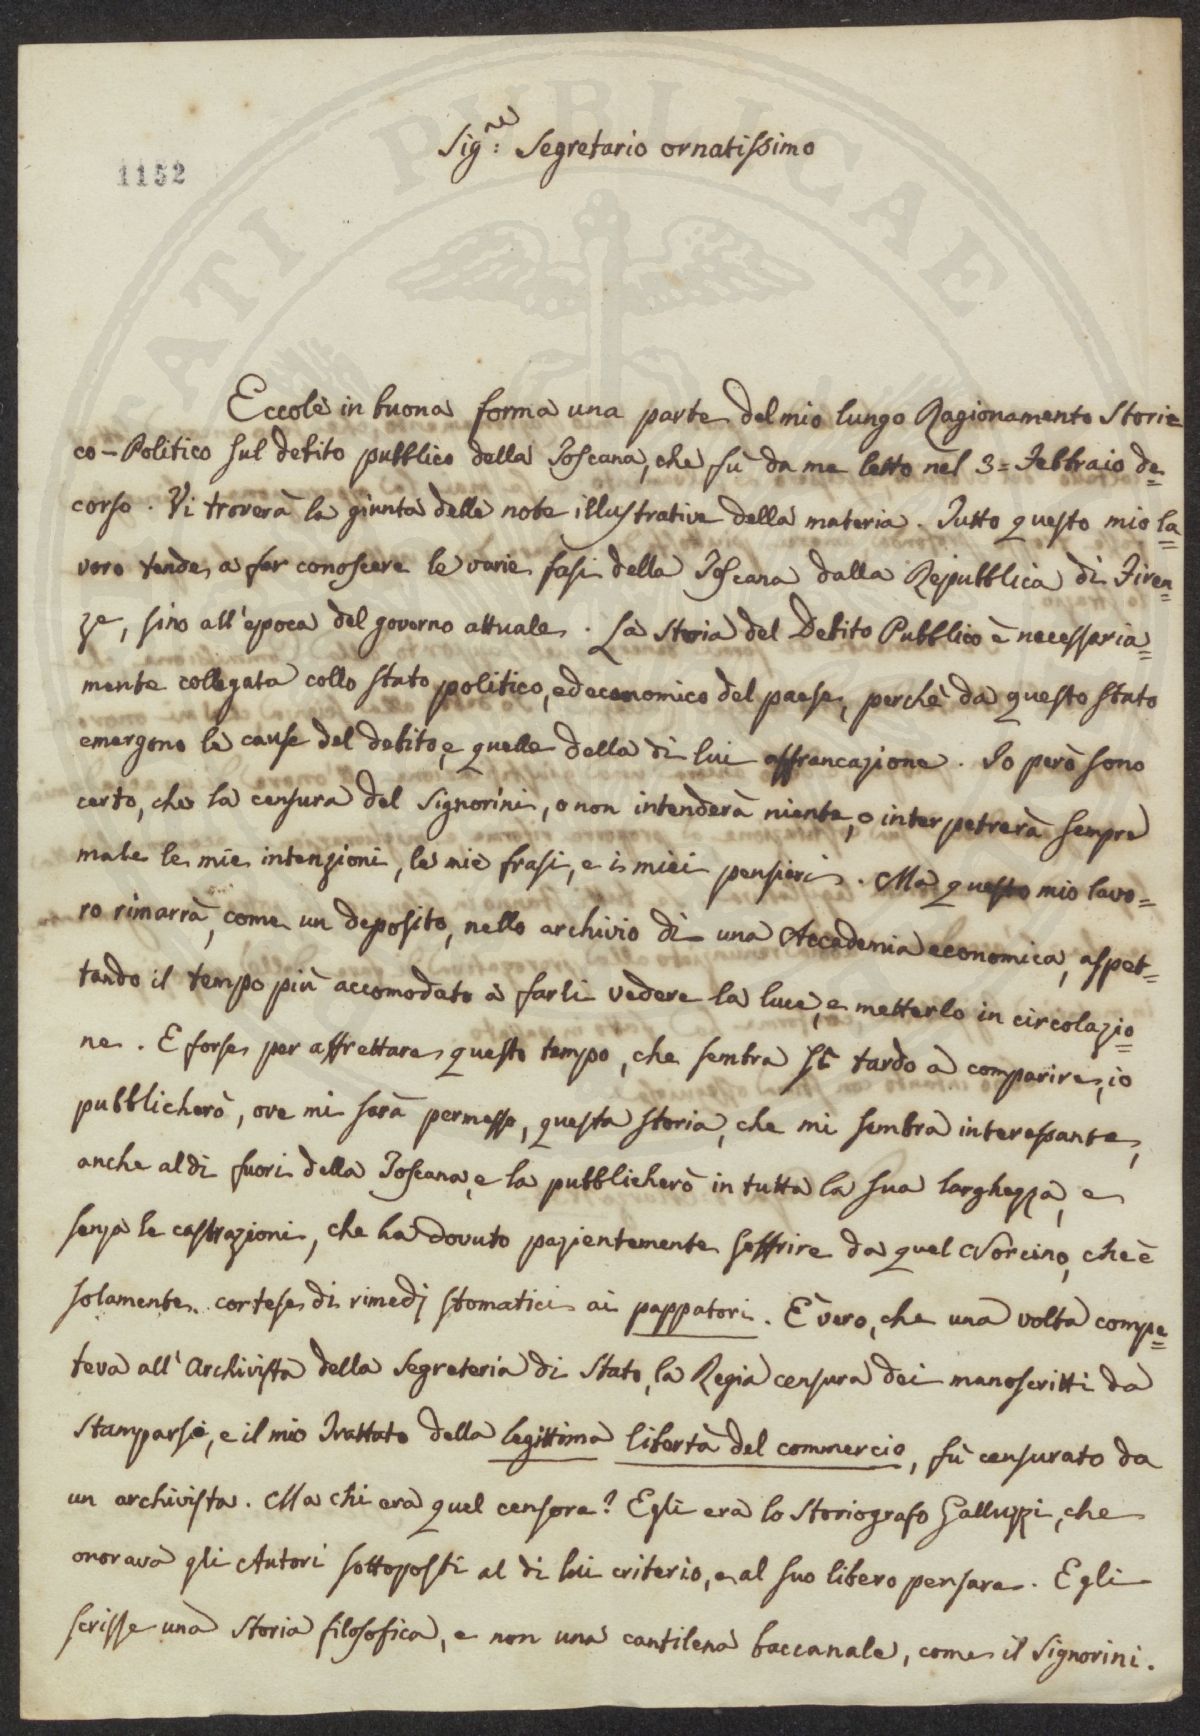 1152
Sig.re: Segretario ornatissimo
Eccole in buona forma una parte del mio lungo Ragionamento Stori=
co-Politico sul debito pubblico della Toscana, che fù da me letto nel 3= Febbraio de=
corso. Vi troverà la giunta delle note illustrative della materia. Tutto questo mio la=
voro tende a far conoscere le varie fasi della Toscana dalla Repubblica di Firen=
ze, sino all'epoca del governo attuale. La Storia del Debito Pubblico è necessaria=
mente collegata collo stato politico, ed economico del paese, perchè da questo stato
emergono le cause del debito, e quelle della di lui affrancazione. Io però sono
certo, che la censura del Signorini, o non intenderà niente, o interpetrerà sempre
male le mie intenzioni, le mie frasi, e i miei pensieri. Ma questo mio lavo=
ro rimarrà, come un deposito, nello archivio di una Accademia economica, aspet=
tando il tempo più accomodato a farli vedere la luce, e metterlo in circolazio=
ne. E forse per affrettare questo tempo, che sembra sì tardo a comparire, io
pubblicherò, ove mi sarà permesso, questa storia, che mi sembra interessante,
anche al di fuori della Toscana, e la pubblicherò in tutta la sua larghezza, e
senza le castrazioni, che ha dovuto pazientemente soffrire da quel Norcino, che è
solamente cortese di rimedj stomatici ai pappatori. È vero, che una volta compe=
teva all'Archivista della Segreteria di Stato, la Regia censura dei manoscritti da
stamparsi, e il mio Trattato della legittima libertà del commercio, fù censurato da
un archivista. Ma chi era quel censore? Egli era lo Storiografo Galluzzi, che
onorava gli Autori sottoposti al di lui criterio, e al suo libero pensare. Egli
scrisse una storia filosofica, e non una cantilena baccanale, come il Signorini.
PUBLICAE